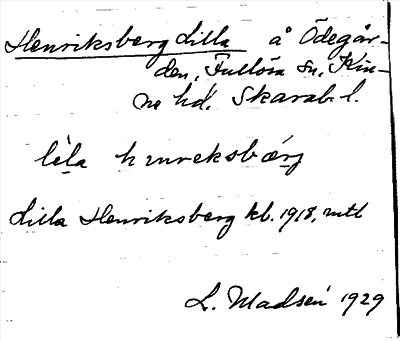 Henriksberg Lilla å Ödegår-
den, Fullösa sn, Kin-
ne hd. Skarab. l.
lela hnreksbærg
Lilla Henriksberg kb. 1918, mtl
L. Madsén 1929